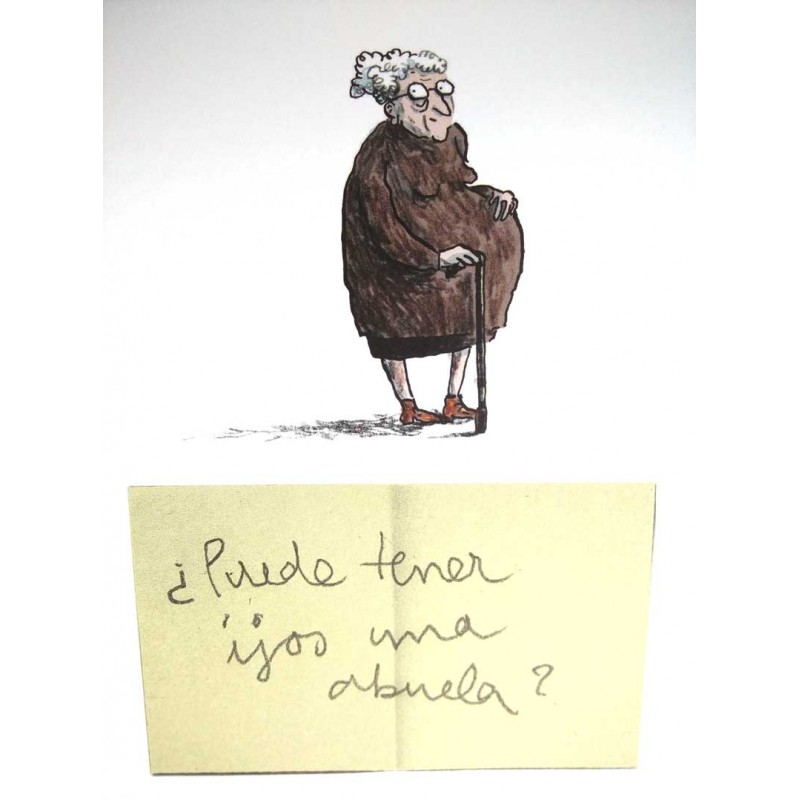 ¿Puede tener
ijos una
abuela?